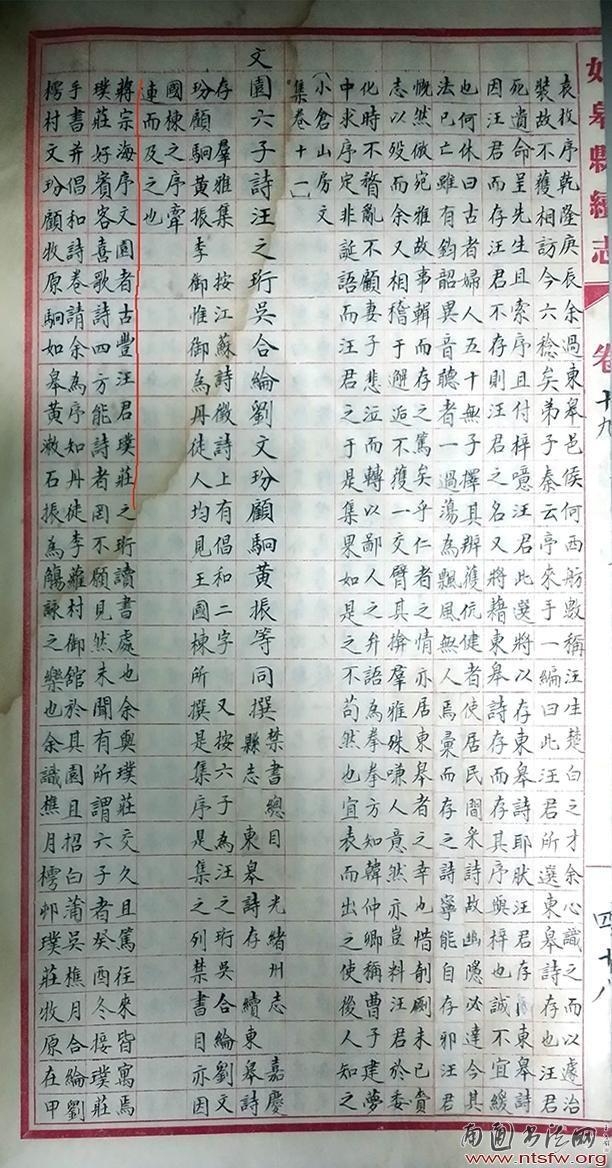 如皋縣續志　卷十九　四十八
袁枚序乾隆庚辰余過東皋邑侯何西舫數稱汪生楚白之才余心識之而以遽治
裝故不獲相訪今六稔矣弟子秦云亭來手一編曰此汪君所選東皋詩存也汪君
死遺命呈先生且索序且付梓噫汪君此選將以存東皋詩耶肰汪君存東皋詩
因汪君而存汪君不存則汪君之名又將藉東皋詩存其序與梓也誠不宜緩
也何休曰古者婦人五十無子擇其辨獲伉健者使居民間采詩故幽隱必達今其
法已亡雖有鈞韶異音聽者一過蕩為飄風無人焉彙而存之詩寧能自存邪汪君
慨然倣宛雅故事輯而存之篤矣乎仁者之情亦居東皋者之幸也惜剞劂未已賫
志以歿而余又相稽于邂逅不獲一交臂其揜羣雅殊嗛人意然亦豈料汪君於委
化時不瞀亂不顧妻子悲泣而轉以鄙人之弁語為拳拳方知韓仲卿稱曹子建夢
中求序定非誕語而汪君之于是集果如是之不苟然也宜表而出之使後人知之
（小倉山房文
集卷十一
文園六子詩汪之珩吳合綸劉文玢顧駉黃振等同撰
禁書總目　光緒州志　嘉慶
縣志　東皋詩存　續東皋詩
存　羣雅集　按江蘇詩徵詩上有倡和二字又按六子為汪之珩吳合綸劉文
玢顧駉黃振李御惟御為丹徒人均見王國棟所撰是集序是集之列禁書目亦因
國棟之序牽
連而及之也
蔣宗海序文園者古豐汪君璞莊之珩讀書處也余與璞莊交久且篤往來皆寓焉
璞莊好賓客喜歌詩四方能詩者罔不願見然未聞有所謂六子者癸酉冬接璞莊
手書并倡和詩卷請余為序如丹徒李蘿村御館於其園且招白蒲吳樵月合綸劉
樗村文玢顧牧原駉如皋黃漱石振為觴詠之樂也余識樵月樗邨璞莊牧原在甲
南通书法网
www.ntsfw.org